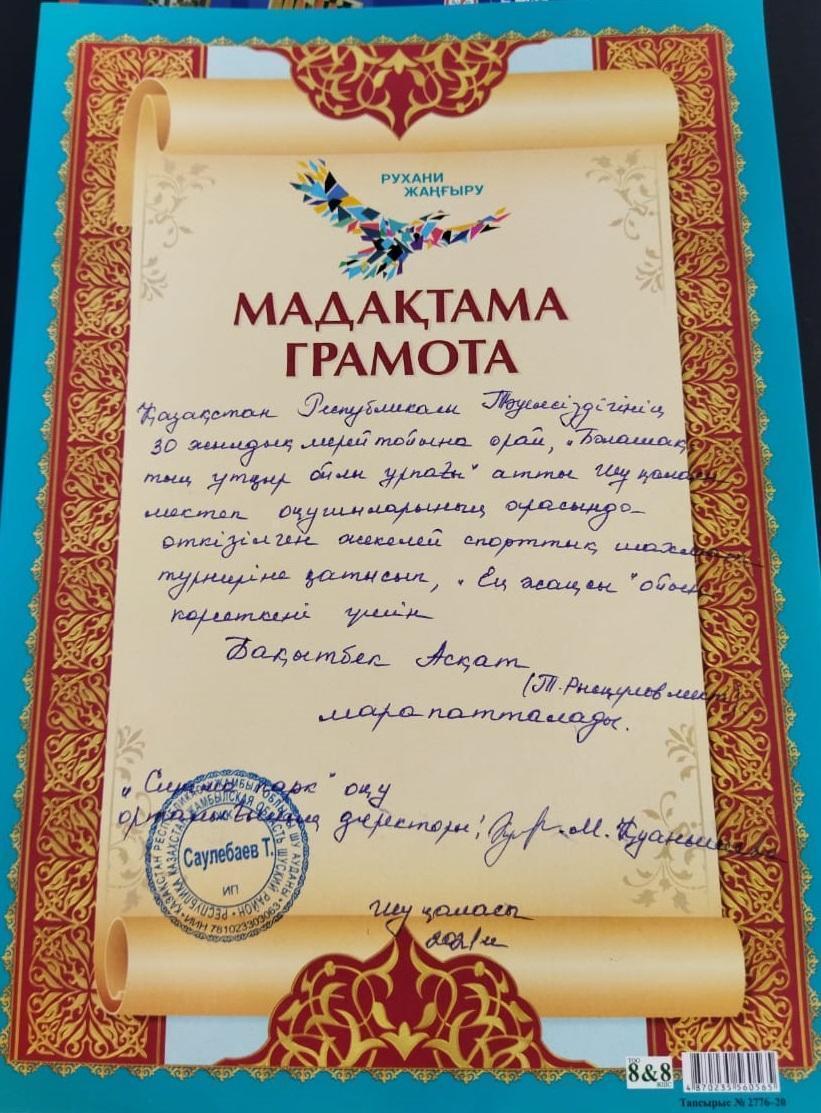 РУХАНИ
ЖАҢҒЫРУ
МАДАҚТАМА
ГРАМОТА
Қазақстан Республикасы Тәуелсіздігінің
30 жылдық мерейтойына орай, „Болашақ
тың ұтқыр ойлы ұрпағы" атты Шу қаласы
мектеп оқушыларының арасында
өткізілген жекелей спорттық шахмат
турниріне қатысып, „Ең жақсы" ойын
көрсеткені үшін
Бақытбек Асқат
(Т. Рысқұлов мект)
марапатталады.
парк" оқу
орталығының директоры: М. Қуанышбаева
Саулебаев Т.
ИП
ИИН 781023303063
Шу қаласы
2021ж
ТОО
8&8
ЖШС
4 870235 560565
Тапсырыс № 2776–20